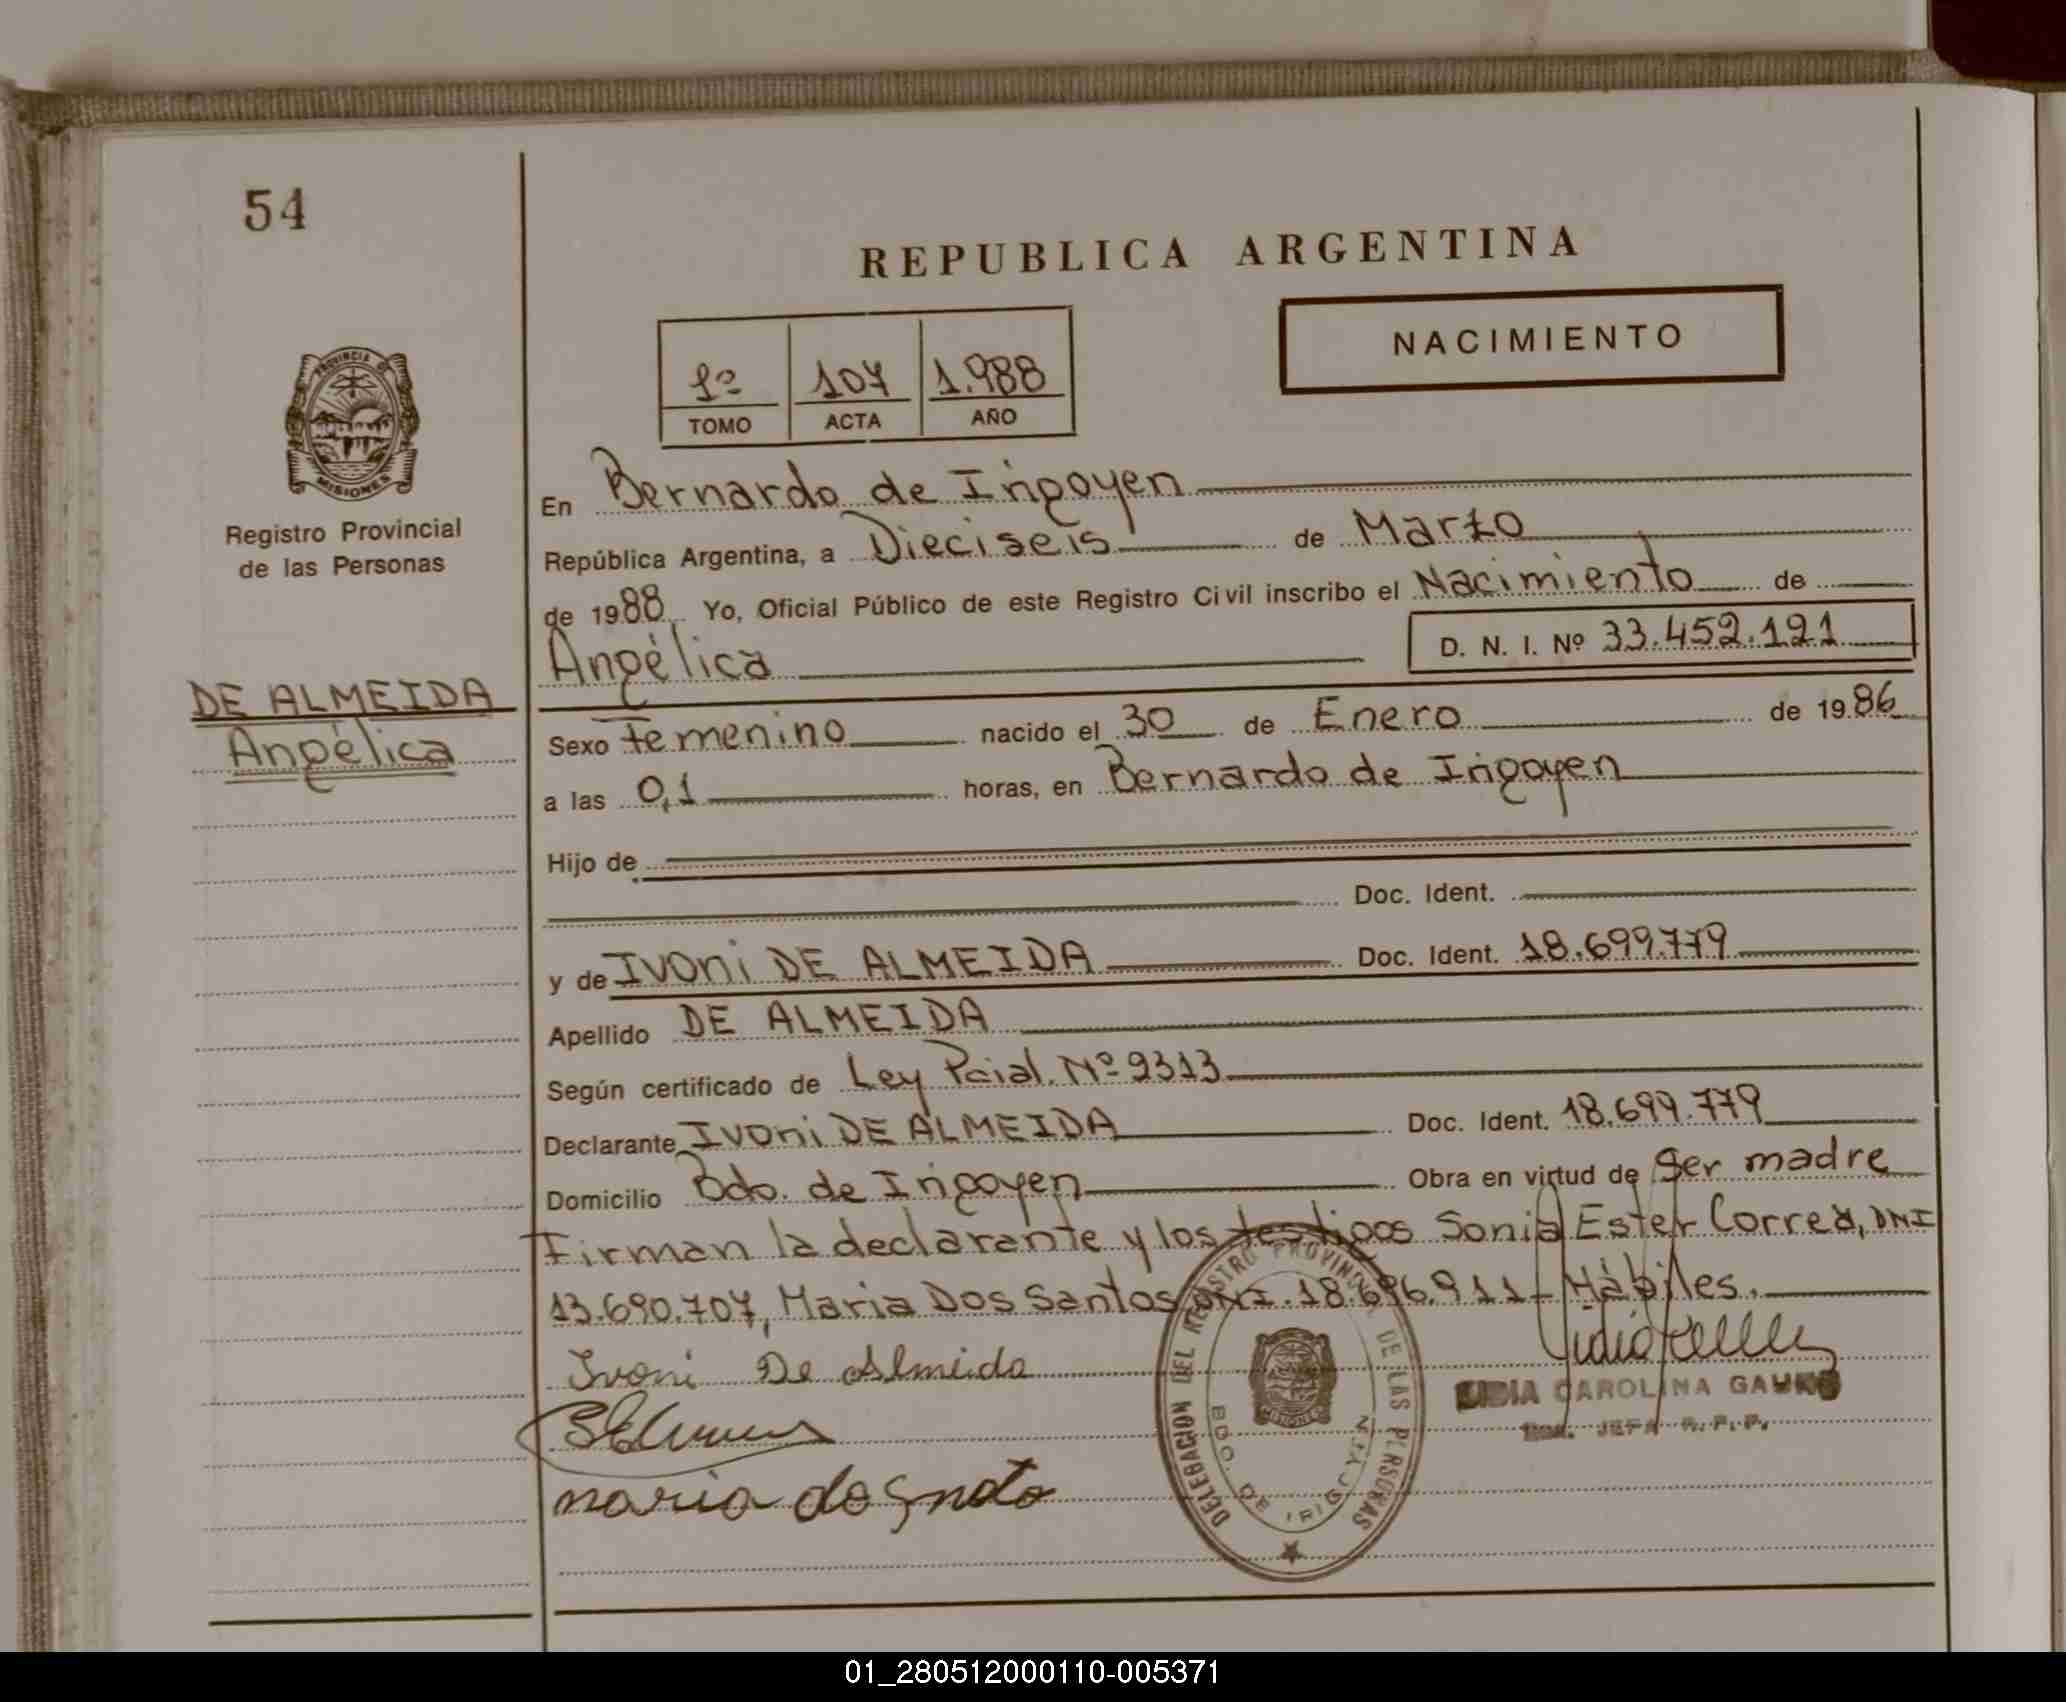 54
REPUBLICA ARGENTINA
NACIMIENTO
1º 107 1.988
TOMO ACTA AÑO
PROVINCIA DE
MISIONES
Registro Provincial
de las Personas
DE ALMEIDA
Angélica
En Bernardo de Irigoyen
República Argentina, a Dieciseis de Marzo
de 1988 Yo, Oficial Público de este Registro Civil inscribo el Nacimiento de
Angélica D. N. I. Nº 33.452.121
Sexo Femenino nacido el 30 de Enero de 1986
a las 0,1 horas, en Bernardo de Irigoyen
Hijo de
Doc. Ident.
y de Ivoni DE ALMEIDA Doc. Ident. 18.699.779
Apellido DE ALMEIDA
Según certificado de Ley Pcial. Nº 2313
Declarante Ivoni DE ALMEIDA Doc. Ident. 18.699.779
Domicilio Bdo. de Irigoyen Obra en virtud de Ser madre
Firman la declarante y los testigos Sonia Ester Correa, DNI
13.690.707, Maria Dos Santos DNI. 18.696.911 - Hábiles.
Ivoni De Almeida
LIDIA CAROLINA
JEFA R. P. P.
DELEGACION DEL REGISTRO PROVINCIAL DE LAS PERSONAS
MISIONES
BDO. DE IRIGOYEN
01_280512000110-005371